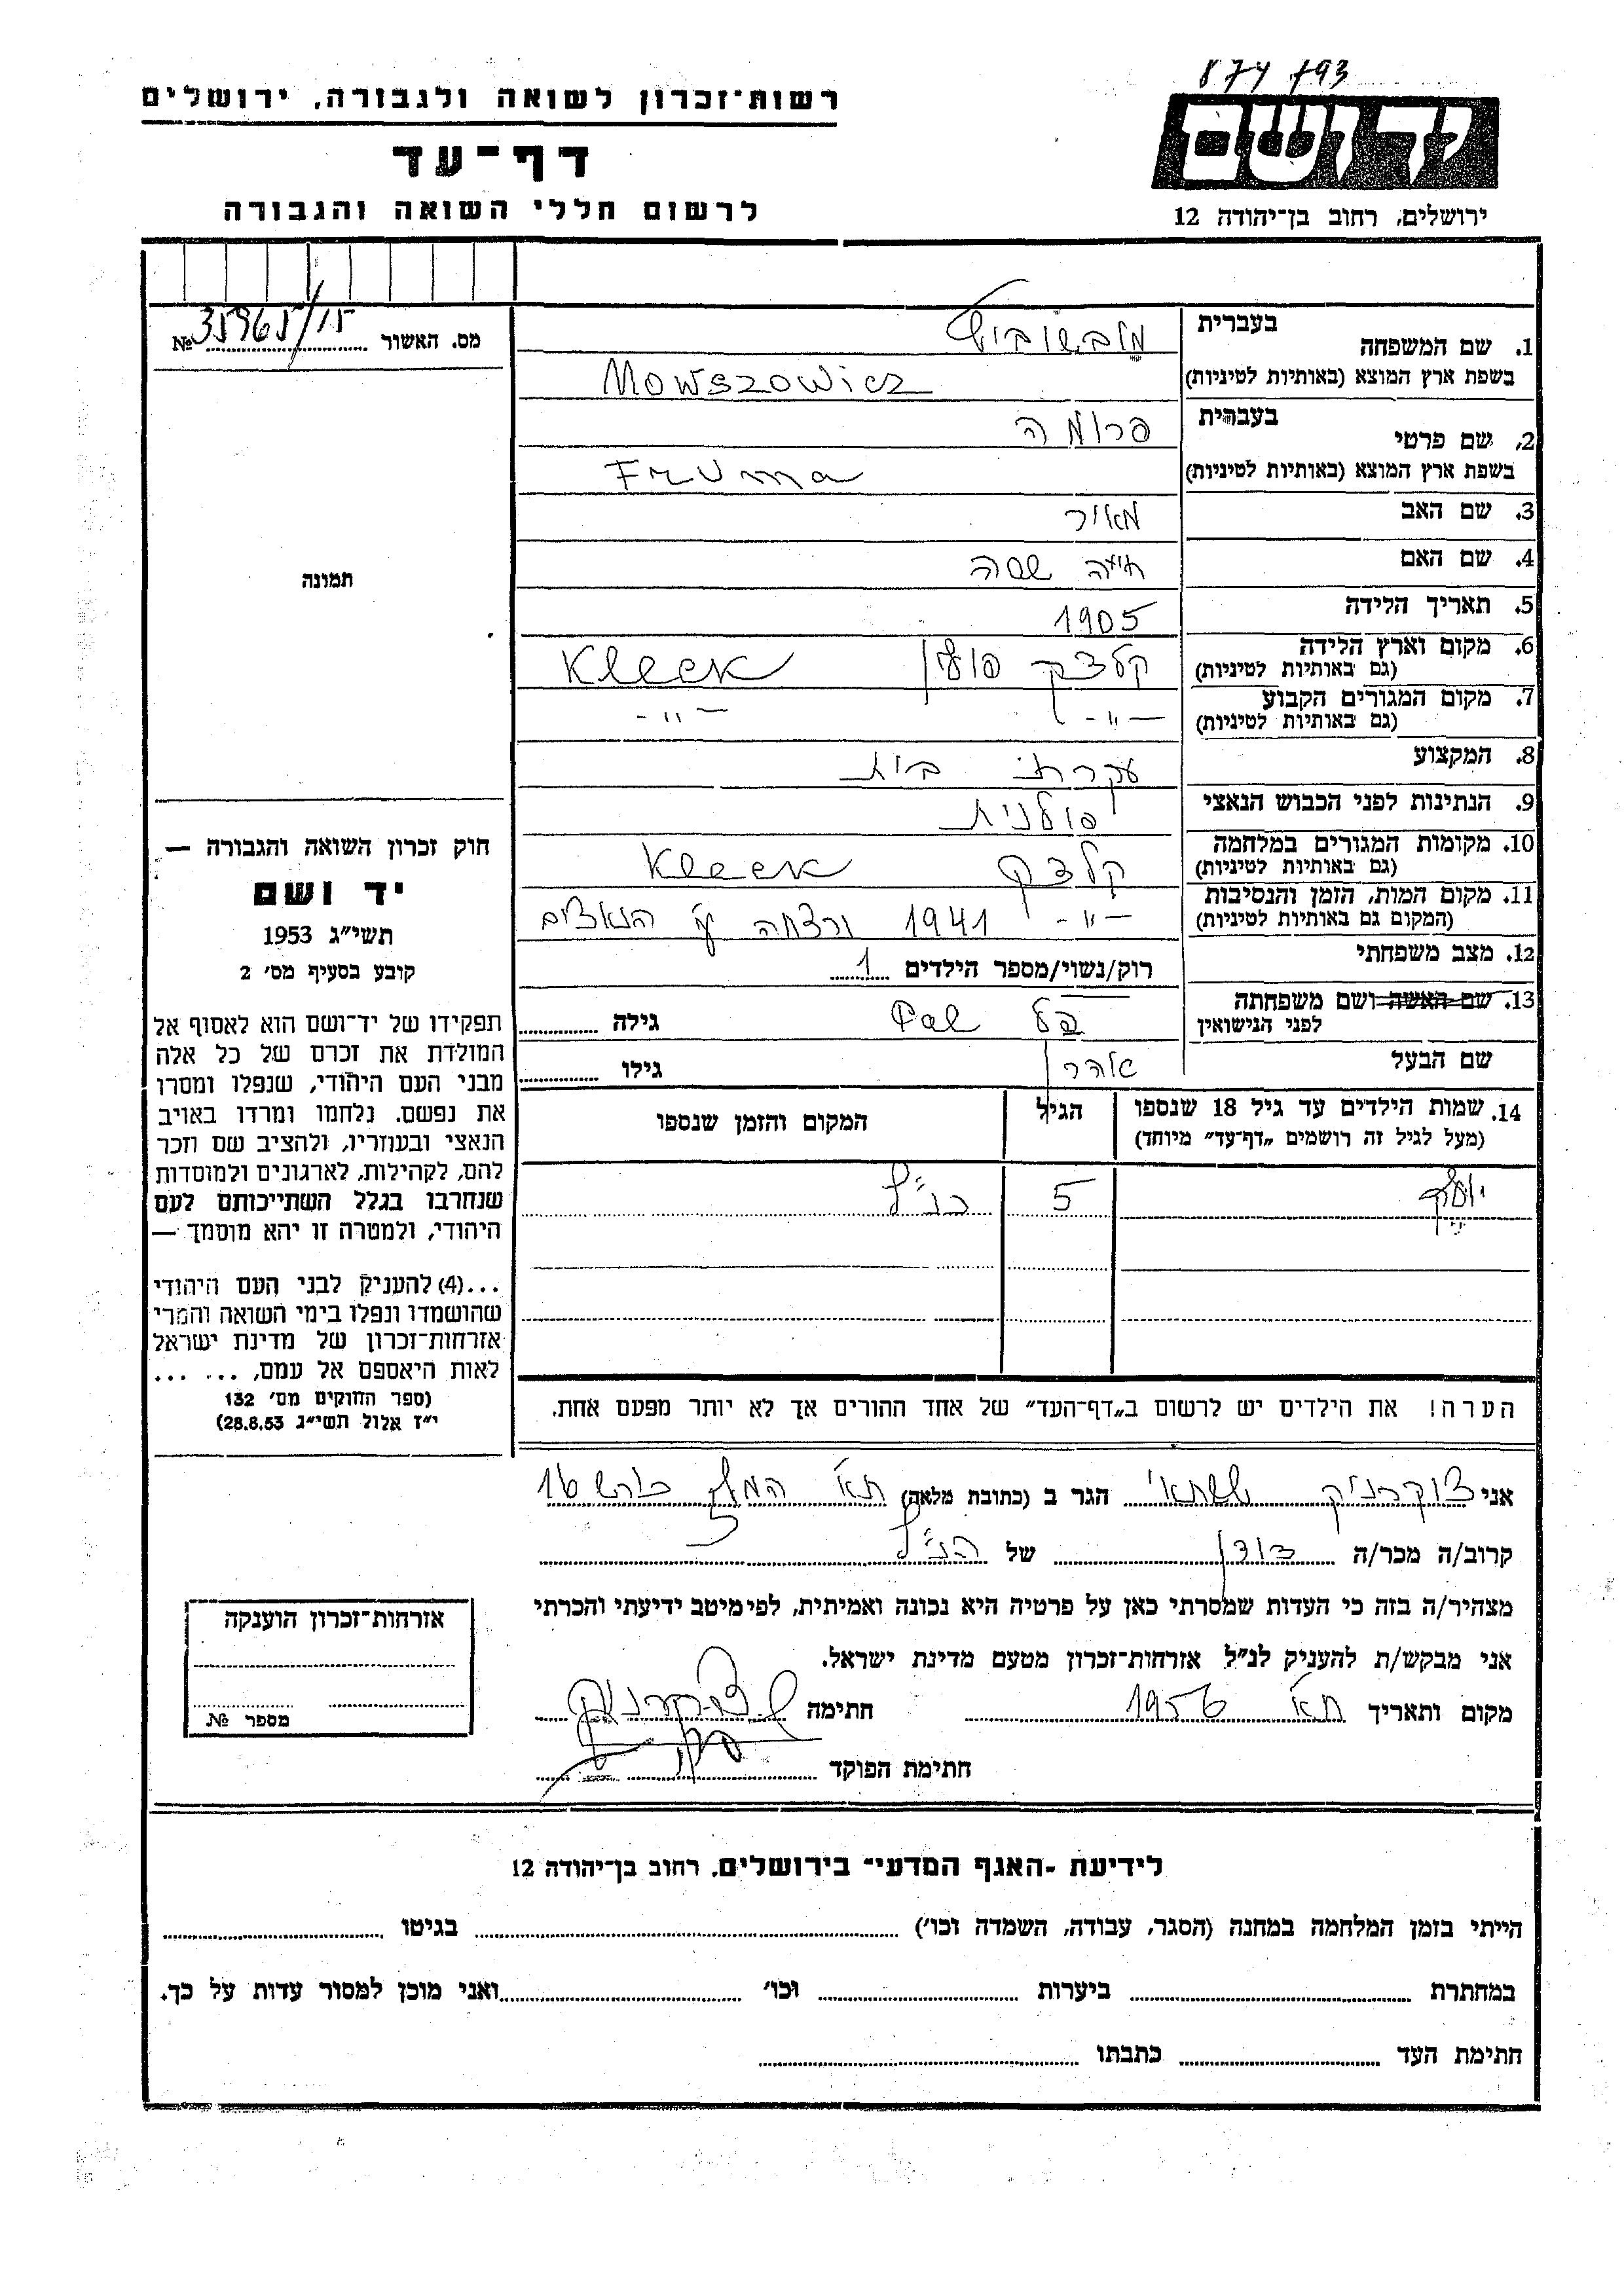 874 793
רשות־זכרון לשואה ולגבורה, ירושלים
דף־עד
לרשום חללי השואה והגבורה
ידושם
ירושלים, רחוב בן־יהודה 12
מס. האשור № 35965/15
תמונה
חוק זכרון השואה והגבורה —
יד ושם
תשי״ג 1953
קובע בסעיף מס׳ 2
תפקידו של יד־ושם הוא לאסוף אל
המולדת את זכרם של כל אלה
מבני העם היהודי, שנפלו ומסרו
את נפשם. נלחמו ומרדו באויב
הנאצי ובעוזריו, ולהציב שם וזכר
להם, לקהילות, לארגונים ולמוסדות
שנחרבו בגלל השתייכותם לעם
היהודי, ולמטרה זו יהא מוסמך —
...(4) להעניק לבני העם היהודי
שהושמדו ונפלו בימי השואה והמרי
אזרחות־זכרון של מדינת ישראל
לאות היאספם אל עמם, ... ...
(ספר החוקים מס׳ 132
י״ז אלול תשי״ג 28.8.53)
1. שם המשפחה בעברית מובשוביץ
בשפת ארץ המוצא (באותיות לטיניות) Mowszowicz
2. שם פרטי בעברית פרומה
בשפת ארץ המוצא (באותיות לטיניות) Fruma
3. שם האב מאיר
4. שם האם חיה שסה
5. תאריך הלידה 1905
6. מקום וארץ הלידה (גם באותיות לטיניות) קלצק פולין Kleck
7. מקום המגורים הקבוע (גם באותיות לטיניות) -״- -״-
8. המקצוע עקרת בית
9. הנתינות לפני הכבוש הנאצי פולנית
10. מקומות המגורים במלחמה (גם באותיות לטיניות) קלצק Kleck
11. מקום המות, הזמן והנסיבות (המקום גם באותיות לטיניות) -״- 1941 נרצחה ע״י הנאצים
12. מצב משפחתי רוק/נשוי/מספר הילדים 1
13. שם האשה ושם משפחתה לפני הנישואין Pal גילה
שם הבעל אהרן גילו
14. שמות הילדים עד גיל 18 שנספו הגיל המקום והזמן שנספו
(מעל לגיל זה רושמים „דף־עד״ מיוחד)
יוסף 5 כנ״ל
הערה! את הילדים יש לרשום ב„דף־העד״ של אחד ההורים אך לא יותר מפעם אחת.
אני צוקרניק שבתאי הגר ב (כתובת מלאה) ת״א 16
קרוב/ה מכר/ה בודן של הנ״ל
מצהיר/ה בזה כי העדות שמסרתי כאן על פרטיה היא נכונה ואמיתית, לפי מיטב ידיעתי והכרתי
אני מבקש/ת להעניק לנ״ל אזרחות־זכרון מטעם מדינת ישראל.
מקום ותאריך ת״א 1956 חתימה ש. צוקרניק
חתימת הפוקד
אזרחות־זכרון הוענקה
מספר №
לידיעת ־האגף המדעי־ בירושלים, רחוב בן־יהודה 12
הייתי בזמן המלחמה במחנה (הסגר, עבודה, השמדה וכו׳) בגיטו
במחתרת ביערות וכו׳ ואני מוכן למסור עדות על כך.
חתימת העד כתבתו